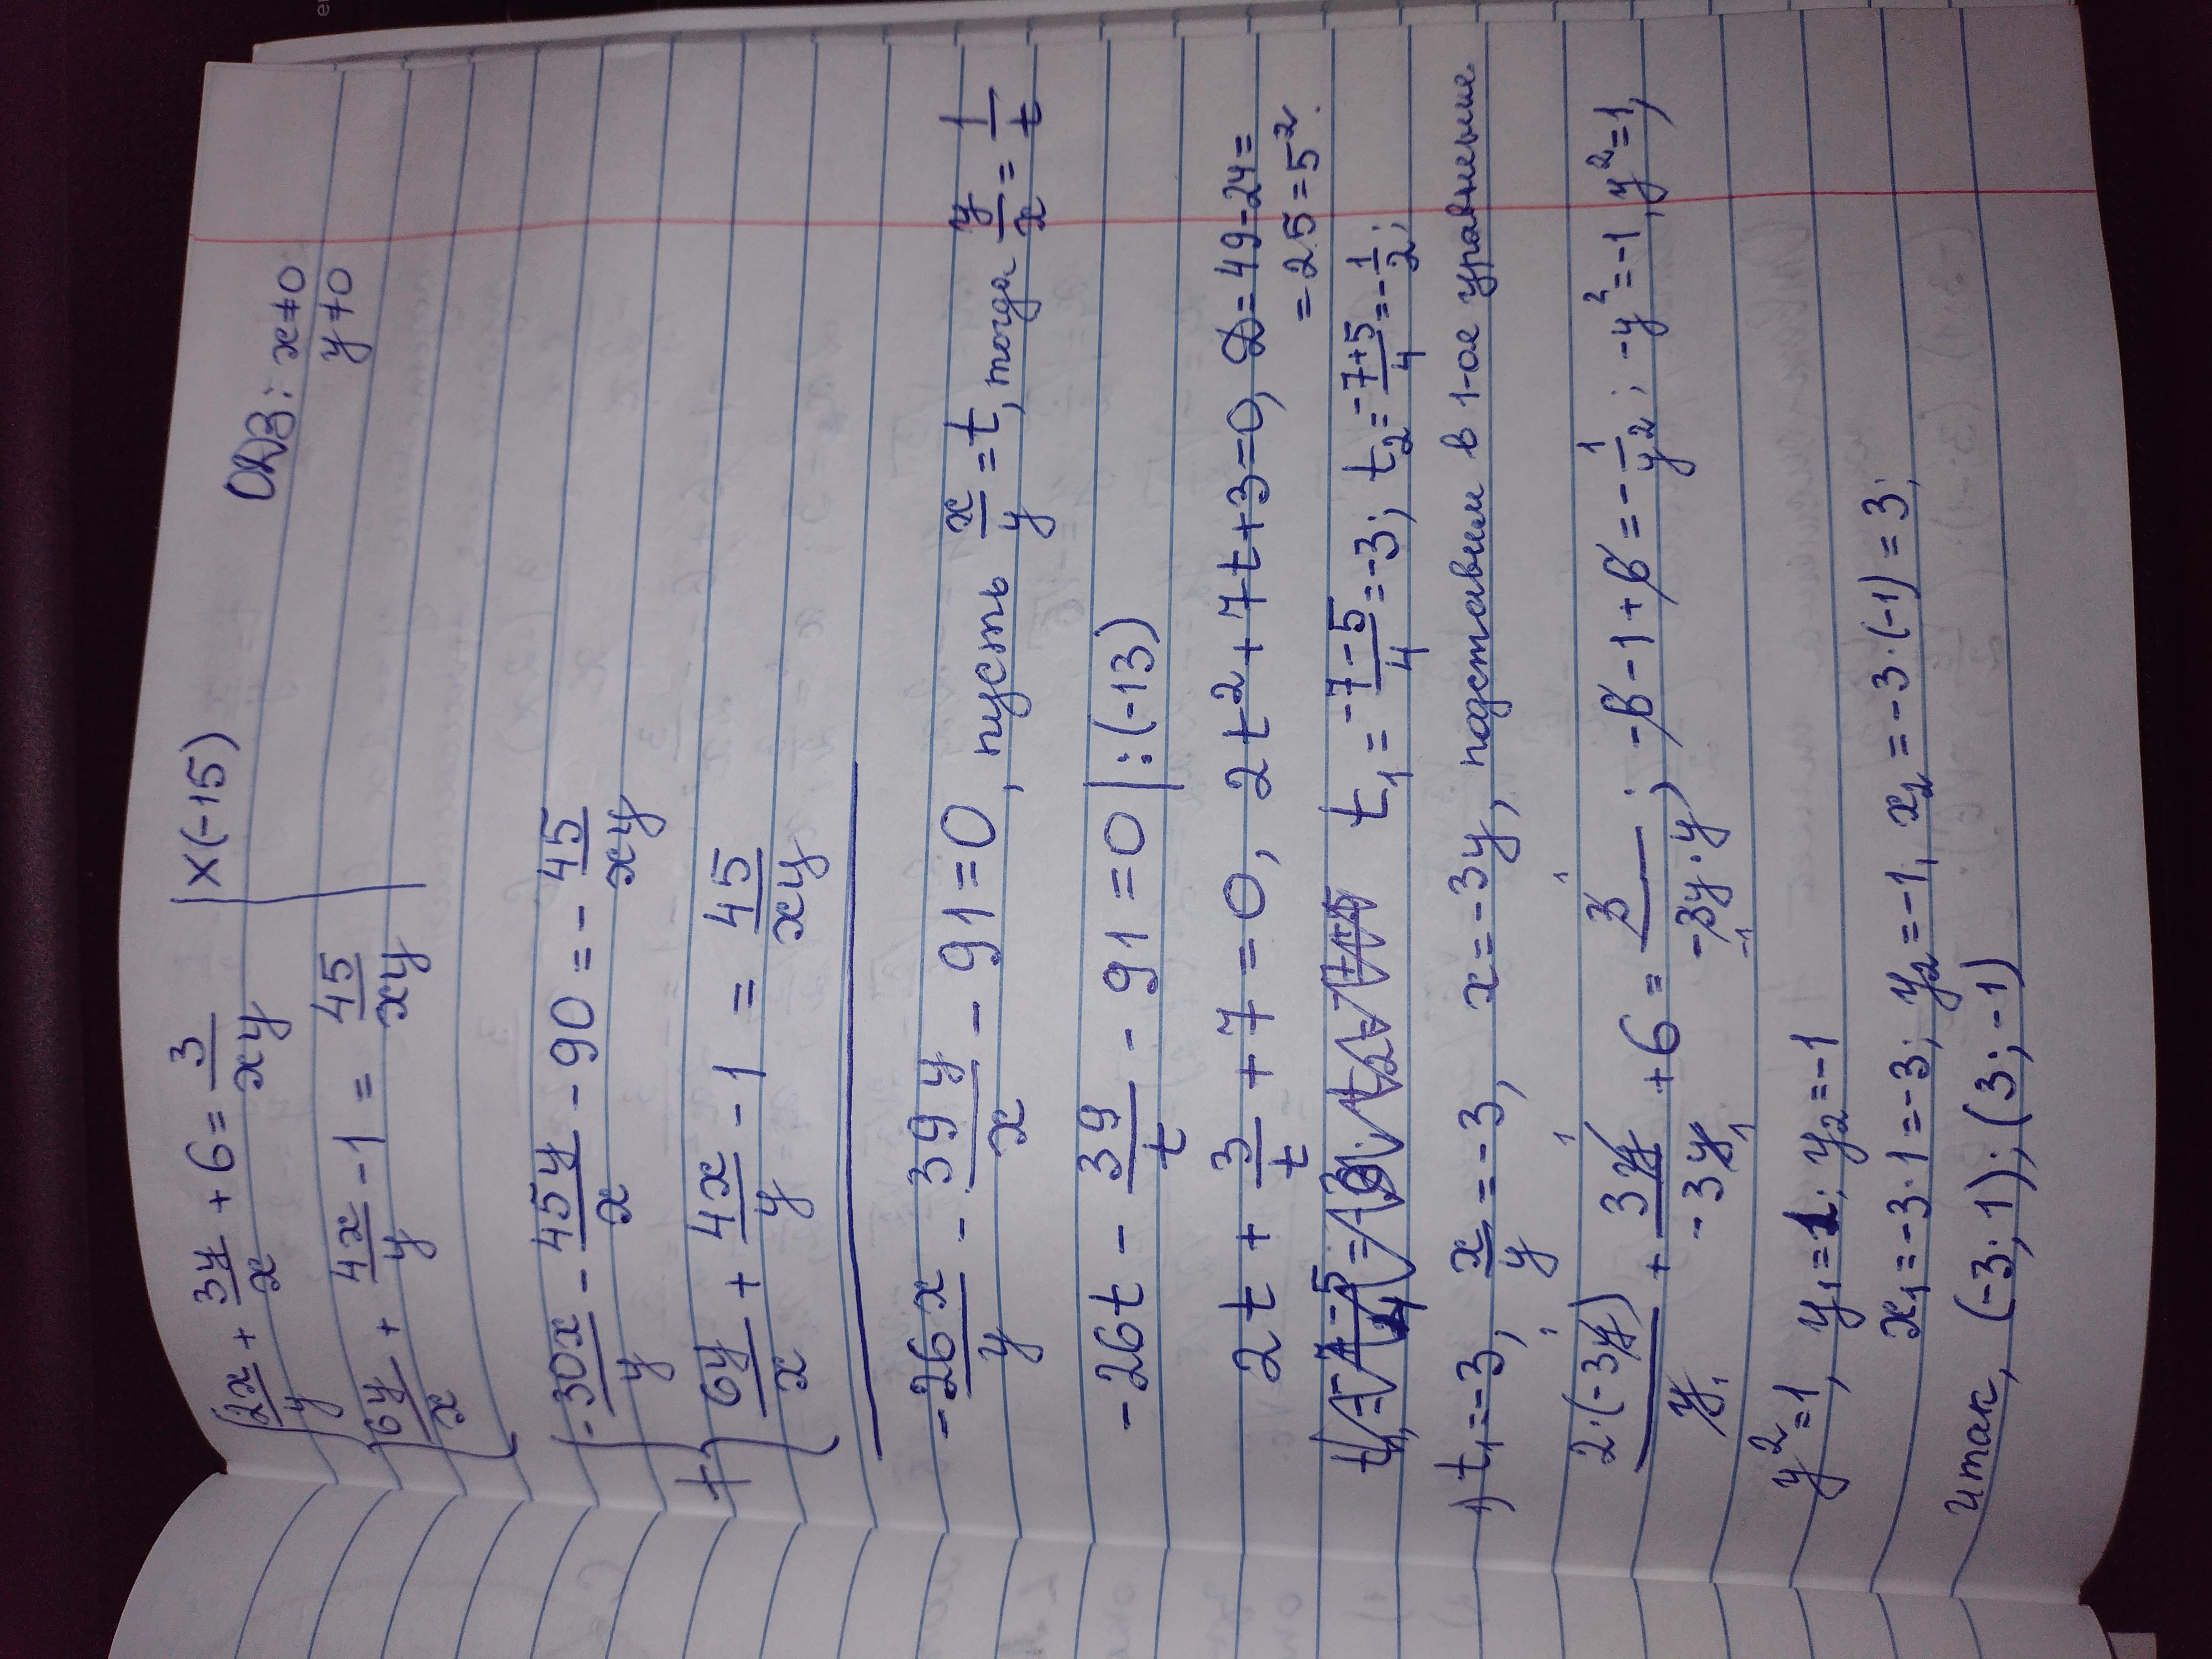 2x/y + 3y/x + 6 = 3/xy | x(-15) ОДЗ: x≠0
6y/x + 4x/y - 1 = 45/xy y≠0
-30x/y - 45y/x - 90 = - 45/xy
+ 6y/x + 4x/y - 1 = 45/xy
-26x/y - 39y/x - 91 = 0, пусть x/y = t, тогда y/x = 1/t
-26t - 39/t - 91 = 0 | : (-13)
2t + 3/t + 7 = 0, 2t² + 7t + 3 = 0, D = 49 - 24 =
= 25 = 5².
t₁ = -7-5/4 = -3; t₂ = -7+5/4 = -1/2;
1) t₁ = -3, x/y = -3, x = -3y, подставим в 1-ое уравнение.
2·(-3y)/y + 3y/-3y + 6 = 3/-3y·y; -6 - 1 + 6 = - 1/y²; -y² = -1, y² = 1,
y² = 1, y₁ = 1; y₂ = -1
x₁ = -3·1 = -3; y₂ = -1, x₂ = -3·(-1) = 3;
итак, (-3; 1); (3; -1)